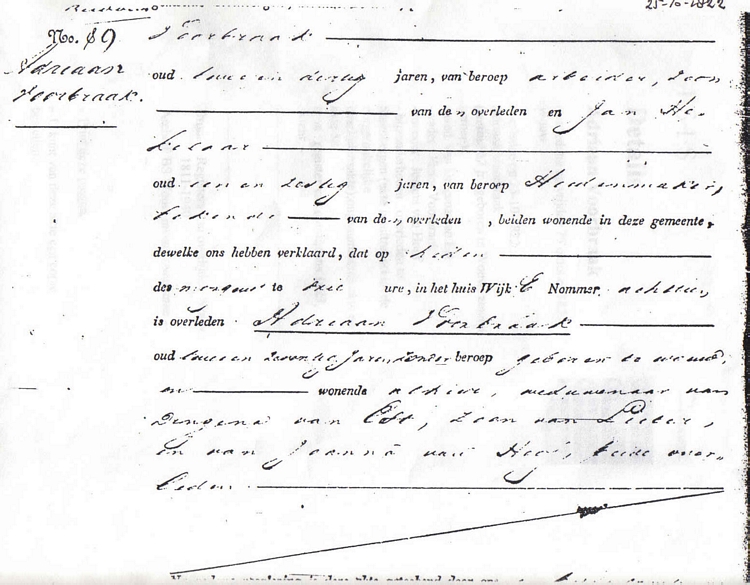 25-10-1822
No. 89 Voorbraak
Adriaan
Voorbraak.
oud twee en dertig jaren, van beroep arbeider, zoon
van den overleden en Jan He-
belaar
oud een en zestig jaren, van beroep
bekende van den overleden, beiden wonende in deze gemeente,
dewelke ons hebben verklaard, dat op heden
des morgens te drie ure, in het huis Wijk E Nommer achttien,
is overleden Adriaan Voorbraak
oud twee en zeventig jaren, zonder beroep geboren te
en wonende alhier, weduwenaar van
Dingena van Est, zoon van Pieter,
en van Joanna van beide over-
leden